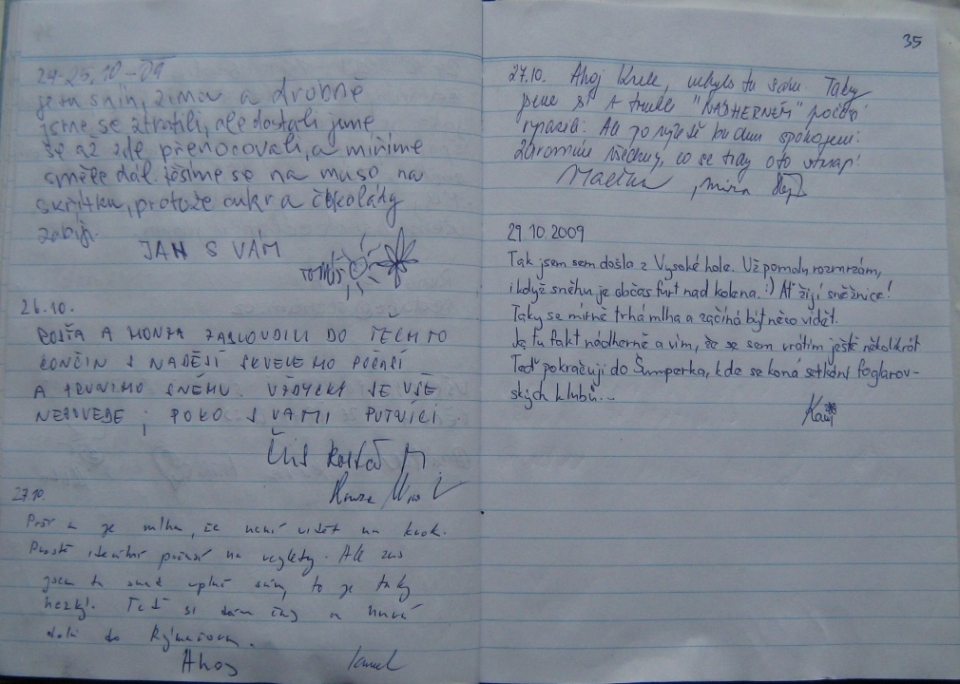 24-25.10-09
je tu sníh, zima a drobně
jsme se ztratili, ale dostali jsme
se až zde přenocovali, a míříme
směle dál. těšíme se na muso na
skřítka, protože cukr a čokolády
zabíjí.
JAN S VÁM
TOMÁŠ
26.10.
KOSŤA A HONZA ZABLOUDILI DO TĚCHTO
KONČIN S NADĚJÍ SKVĚLÉHO POČASÍ
A PRVNÍHO SNĚHU. VŽDYCKY SE VŠE
NEPOVEDE; POKOJ S VÁMI PUTNÍCI
27.10.
Prší a je mlha, že není vidět na krok.
Prostě ideální počasí na výlety. Ale zas
jsem tu snad úplně sám, to je taky
hezký. Teď si dám čaj a hurá
dolů do Rýmařova.
Ahoj Kamil
35
27.10. Ahoj Kamile, nebyls tu sám. Taky
jsme si t "NÁDHERNÉM" počasí
. Ale po výletě budem spokojeni.
Zdravíme všechny, co se tady
Martin, Míra
29.10.2009
Tak jsem sem došla z Vysoké hole. Už pomalu rozmrzám,
i když sněhu je občas furt nad kolena. :) Ať žijí sněžnice!
Taky se mírně trhá mlha a začíná být něco vidět.
Je tu fakt nádherně a vím, že se sem vrátím ještě několikrát
Teď pokračuji do Šumperka, kde se koná setkání foglarov-
ských klubů...